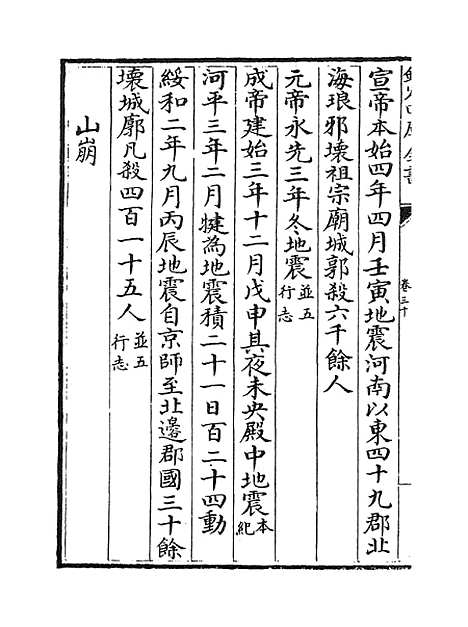 宣帝本始四年四月壬寅地震河南以東四十九郡北
海琅邪壞祖宗廟城郭殺六千餘人
元帝永先三年冬地震並五行志
成帝建始三年十二月戊申其夜未央殿中地震本紀
河平三年二月犍為地震積二十一日百二十四動
綏和二年九月丙辰地震自京師至北邊郡國三十餘
壞城廓凡殺四百一十五人並五行志
山崩
卷三十